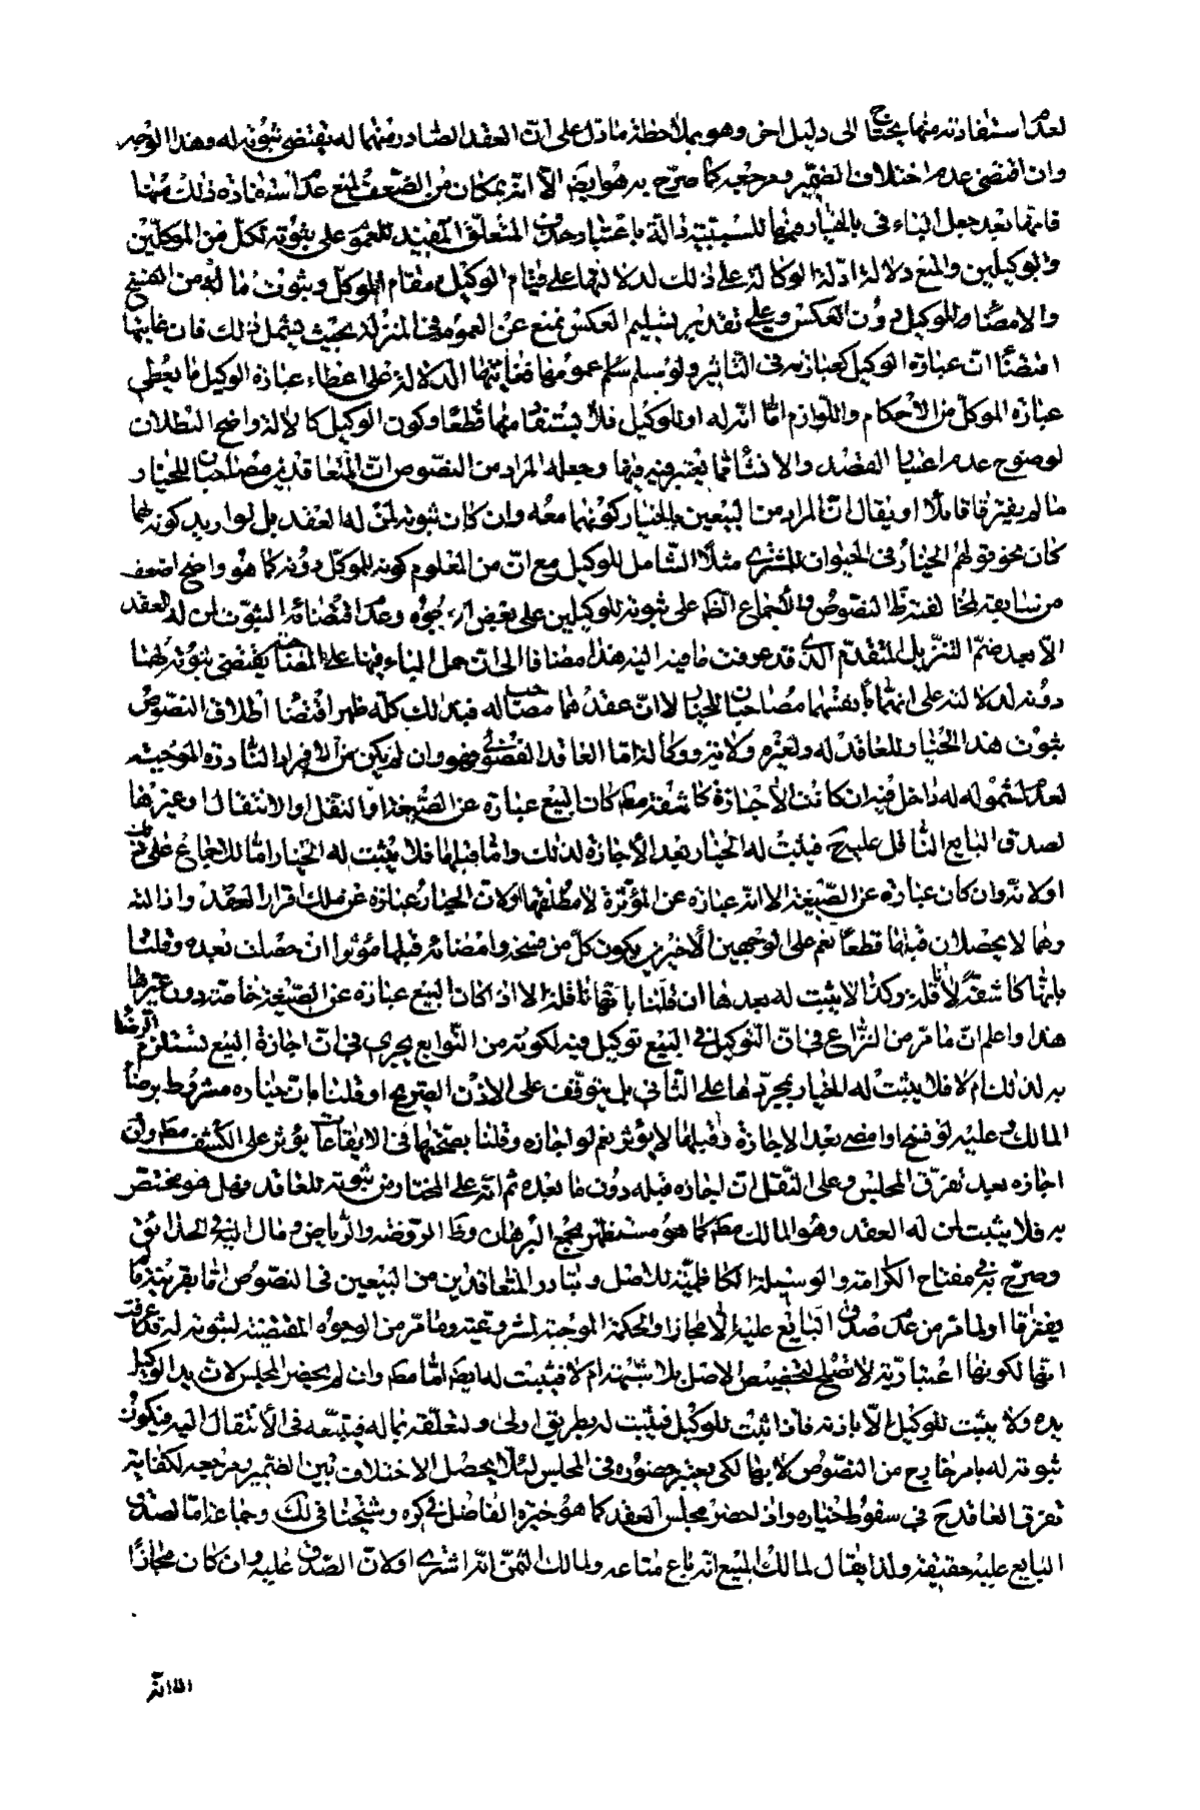 لعدم استفادته منهما يحتاج الى دليل اخر وهو بملاحظة ما دل على ان العقد الصادر منهما له يقتضى ثبوته له وهذا الوجه
وان اقتضى عدم اختلاف الضمير ومرجعه كما صرح به هو ايضا الا انه بمكان من الضعف لمنع عدم استفادة ذلك منهما
فانهما بعد جعل الباء فى بالخيار فيهما للسببية دالة باعتبار حذف المتعلق المفيد للعموم على ثبوته لكل من الموكلين
والوكيلين والمنع دلالة ادلة الوكالة على ذلك لدلالتها على قيام الوكيل مقام الموكل وثبوت ما له من الفسخ
والامضاء للوكيل دون العكس وعلى تقدير تسليم العكس نمنع عن العموم فى المنزلة بحيث يشمل ذلك فان غايتها
اقتضاء ان عبارة الوكيل كعبارته فى التاثير ولو سلم عمومها فغايتها الدلالة على اعطاء عبارة الوكيل ما يعطى
عبارة الموكل من الاحكام واللوازم اما انه له او للوكيل فلا يستفاد منها قطعا وكون الوكيل كالالة واضح البطلان
لوضوح عدم اعتبار القصد والانشاء فيما يعتبر فيه فيها وجعله المراد من النصوص ان المتعاقدين مصاحبان للخيار
ما لم يفترقا قائلا او يقال ان المراد من البيعين بالخيار كونهما معه وان كان ثبوته لمن له العقد بل لو اريد كونه لهما
كان نحو قولهم الخيار فى الحيوان للمشترى مثلا الشامل للوكيل مع ان من المعلوم كونه للموكل دونه كما هو واضح اضعف
من سابقه لمخالفته ظاهر النصوص والاجماع الظاهر على ثبوته للوكيلين على بعض الوجوه وعدم اقتضائه الثبوت لمن له العقد
الا بعد ضم التنزيل المتقدم الذى قد عرفت ما فيه اليه هذا مضافا الى ان حمل الباء فيها على المصاحبة يقتضى ثبوته لهما
دونه لدلالته على انهما بانفسهما مصاحبان للخيار لا ان عقدهما مصاحب له فبذلك كله ظهر اقتضاء اطلاق النصوص
ثبوت هذا الخيار للعاقد له ولغيره ولاية ووكالة اما العاقد الفضولى فهو وان لم يكن من الافراد النادرة الموجبة
لعدم شموله له داخل فيه ان كانت الاجازة كاشفة مطلقا كان البيع عبارة عن الصيغة او النقل او الانتقال او غيرها
لصدق البايع الناقل عليه ح فيثبت له الخيار بعد الاجازة لذلك واما قبلها فلا يثبت له الخيار اما للاجماع على ذلك
اولانه وان كان عبارة عن الصيغة الا انه عبارة عن المؤثرة لا مطلقها اولان الخيار عبارة عن ملك اقرار العقد وازالته
وهما لا يحصلان قبلها قطعا نعم على الوجهين الاخيرين يكون كل من فسخه وامضائه قبلها مؤثرا ان حصلت بعده وقلنا
بانها كاشفة لا ناقلة وكذا لا يثبت له بعدها ان قلنا بانها ناقلة الا اذا كان البيع عبارة عن الصيغة خاصة دون غيرها
هذا واعلم ان ما مر من النزاع فى ان التوكيل فى البيع توكيل فيه لكونه من التوابع يجرى فى ان اجازة البيع تستلزم الرضا
به لذلك ام لا فلا يثبت له الخيار بمجردها على الثانى بل يتوقف على الاذن الصريح او قلنا بان خياره مشروط برضا
المالك وعليه لو فسخ او امضى بعد الاجازة وقبلها لا يؤثر نعم لو اجازه وقلنا بصحتها فى الايقاعات يؤثر على الكشف مطلقا وان
اجازه بعد تفرق المجلس وعلى النقل ان اجازه قبله دون ما بعده ثم انه على المختار من ثبوته للعاقد فهل هو مختص
به فلا يثبت لمن له العقد وهو المالك مطلقا كما هو مستظهر مجمع البرهان وظاهر الروضة والرياض ومال اليه فى الحدائق
وصرح به فى مفتاح الكرامة والوسيلة الكاظمية للاصل وتبادر المتعاقدين من البيعين فى النصوص اما بقرينة ما لم
يفترقا او لما مر من عدم صدق البايع عليه الا مجازا والحكمة الموجبة لمشروعيته وما مر من الوجوه المقتضية لثبوته له قد عرفت
انها لكونها اعتبارية لا تصلح لتخصيص الاصل بلا شبهة ام لا فيثبت له ايضا اما مطلقا وان لم يحضر المجلس لان يد الوكيل
يده ولا يثبت للوكيل الا باذنه فاذا ثبت للوكيل فيثبت له بطريق اولى ولتعلقه بماله فيتبعه فى الانتقال اليه فيكون
ثبوته له بامر خارج من النصوص لا بها لكى يعتبر حضوره فى المجلس لئلا يحصل الاختلاف بين الضمير ومرجعه لكفاية
تفرق العاقد ح فى سقوط خياره واذا حضر مجلس العقد كما هو خيرة الفاضل فى كره وشيخنا فى لك وجماعة اما لصدق
البايع عليه حقيقة ولذا يقال لمالك المبيع انه باع متاعه ولمالك الثمن انه اشترى اولان الصدق عليه وان كان مجازا
الا انه